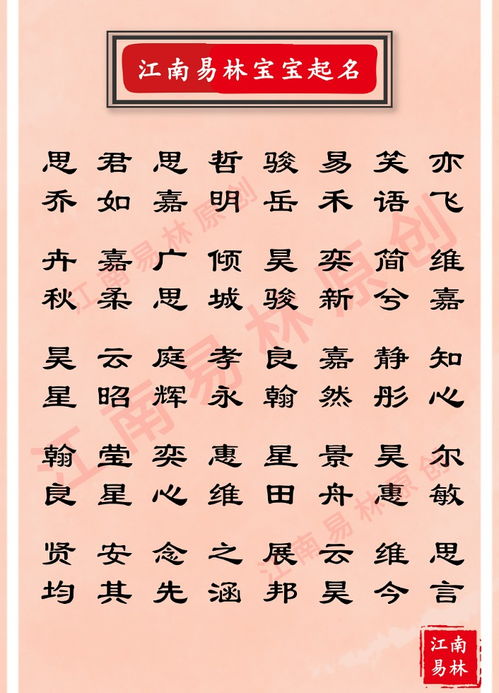 江南易林宝宝起名
思 君 思 哲 骏 易 笑 亦
乔 如 嘉 明 岳 禾 语 飞
卉 嘉 广 倾 昊 奕 简 维
秋 柔 思 城 骏 新 兮 嘉
昊 云 庭 孝 良 嘉 静 知
星 昭 辉 永 翰 然 彤 心
翰 莹 奕 惠 星 景 昊 尔
良 星 心 维 田 舟 惠 敏
贤 安 念 之 展 云 维 思
均 其 先 涵 邦 昊 今 言
江南易林原创
江南易林原创
江南易林原创
江南
易林